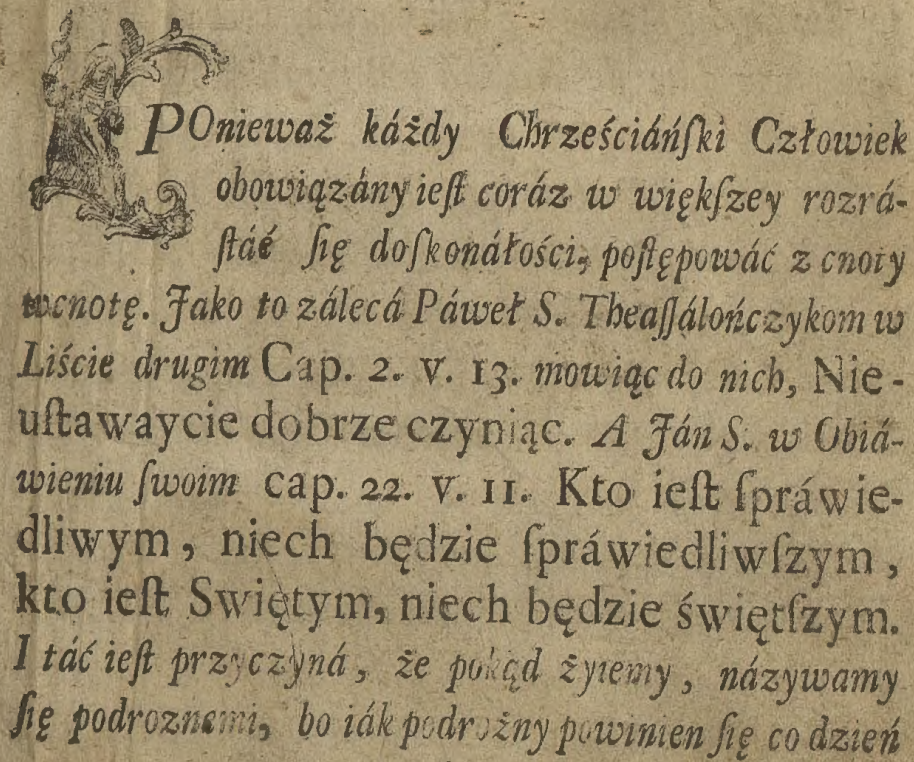 POnieważ káżdy Chrześciáńſki Człowiek
obowiązány ieſt coráz w więkſzey rozrá-
ſtáć ſię doſkonáłości, poſtępowáć z cnoty
wcnotę. Jako to zálecá Páweł S. Theaſſálończykom w
Liście drugim Cap. 2. v. 13. mowiąc do nich, Nie-
uſtawaycie dobrze czyniąc. A Ján S. w Obiá-
wieniu ſwoim cap. 22. v. 11. Kto ieſt ſpráwie-
dliwym, niech będzie ſpráwiedliwſzym,
kto ieſt Swiętym, niech będzie świętſzym.
I táć ieſt przyczyná, że pokąd żyiemy, názywamy
ſię podroznemi, bo iák podrożny powinien ſię co dzień